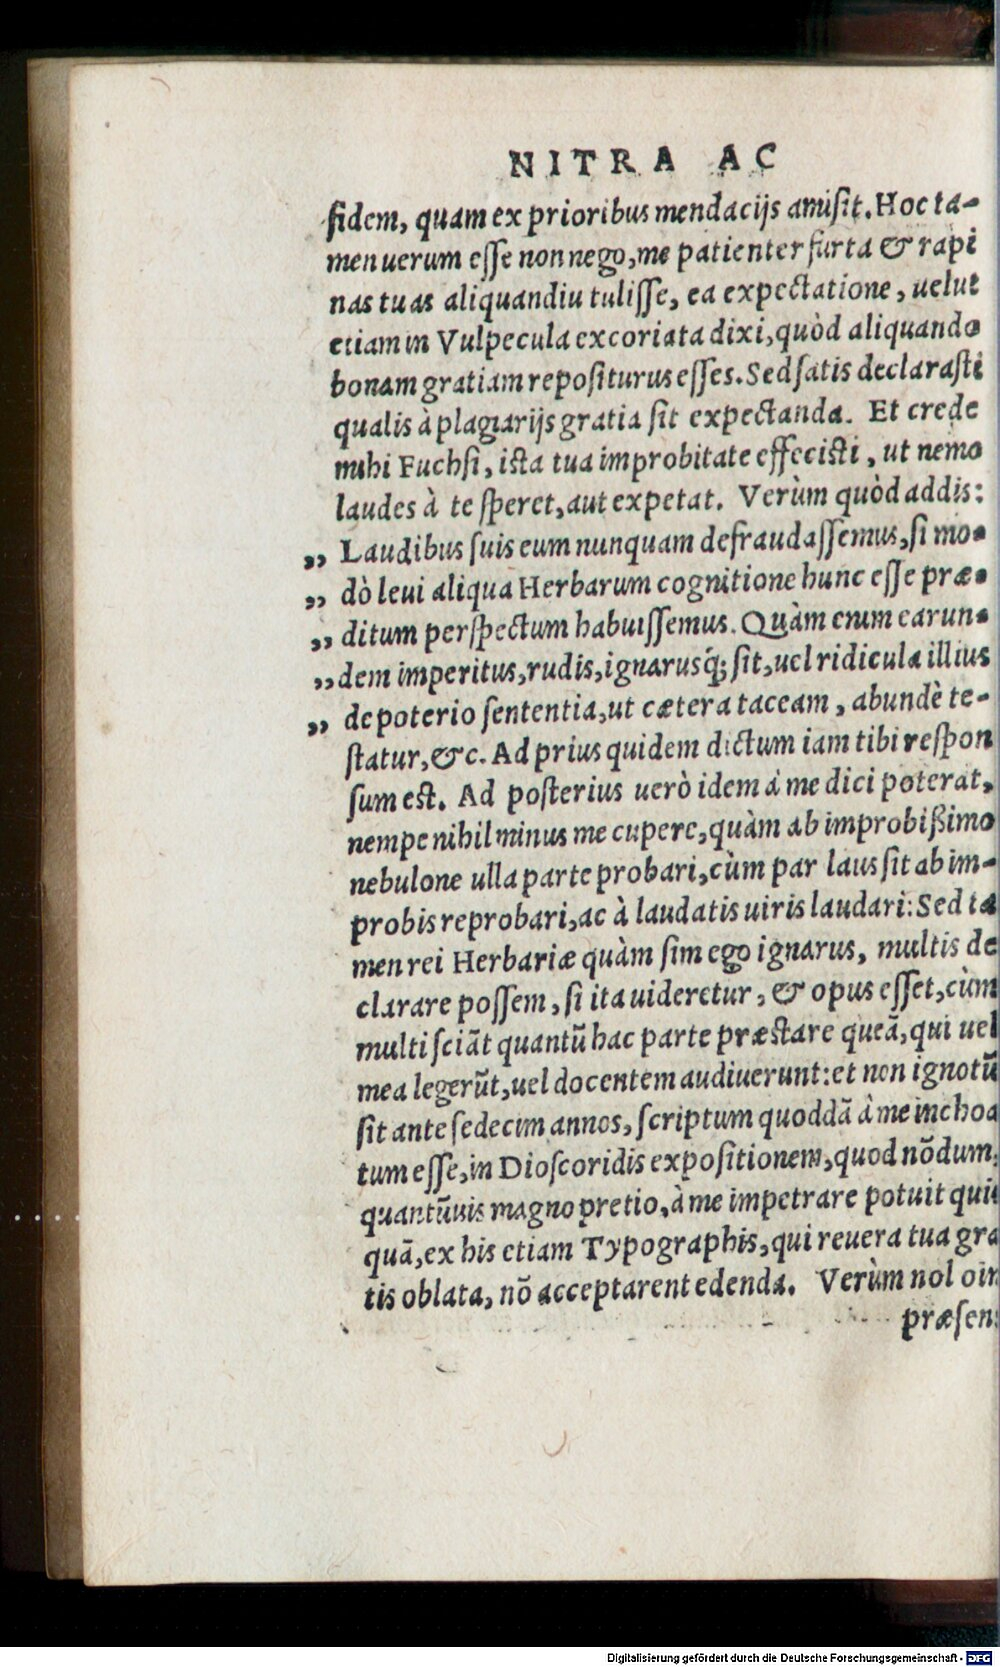 NITRA AC
fidem, quam ex prioribus mendacijs amisit. Hoc ta-
men uerum esse non nego, me patienter furta & rapi
nas tuas aliquandiu tulisse, ea expectatione, uelut
etiam in Vulpecula excoriata dixi, quòd aliquando
bonam gratiam repositurus esses. Sed satis declarasti
qualis à plagiarijs gratia sit expectanda. Et crede
mihi Fuchsi, ista tua improbitate effecisti, ut nemo
laudes à te speret, aut expetat. Verùm quòd addis:
„ Laudibus suis eum nunquam defraudassemus, si mo-
„ dò leui aliqua Herbarum cognitione hunc esse præ-
„ ditum perspectum habuissemus. Quàm enim earun-
„ dem imperitus, rudis, ignarusq́; sit, uel ridicula illius
„ de poterio sententia, ut cætera taceam, abundè te-
statur, &c. Ad prius quidem dictum iam tibi respon
sum est. Ad posterius uerò idem à me dici poterat,
nempe nihil minus me cupere, quàm ab improbißimo
nebulone ulla parte probari, cùm par laus sit ab im-
probis reprobari, ac à laudatis uiris laudari: Sed ta
men rei Herbariæ quàm sim ego ignarus, multis de
clarare possem, si ita uideretur, & opus esset, cùm
multi sciãt quantũ hac parte præstare queã, qui uel
mea legerũt, uel docentem audiuerunt: et non ignotũ
sit ante sedecim annos, scriptum quoddã à me inchoa
tum esse, in Dioscoridis expositionem, quod nõdum,
quantũuis magno pretio, à me impetrare potuit quis
quã, ex his etiam Typographis, qui reuera tua gra
tis oblata, nõ acceptarent edenda. Verùm nol oin
præsen-
Digitalisierung gefördert durch die Deutsche Forschungsgemeinschaft - DFG